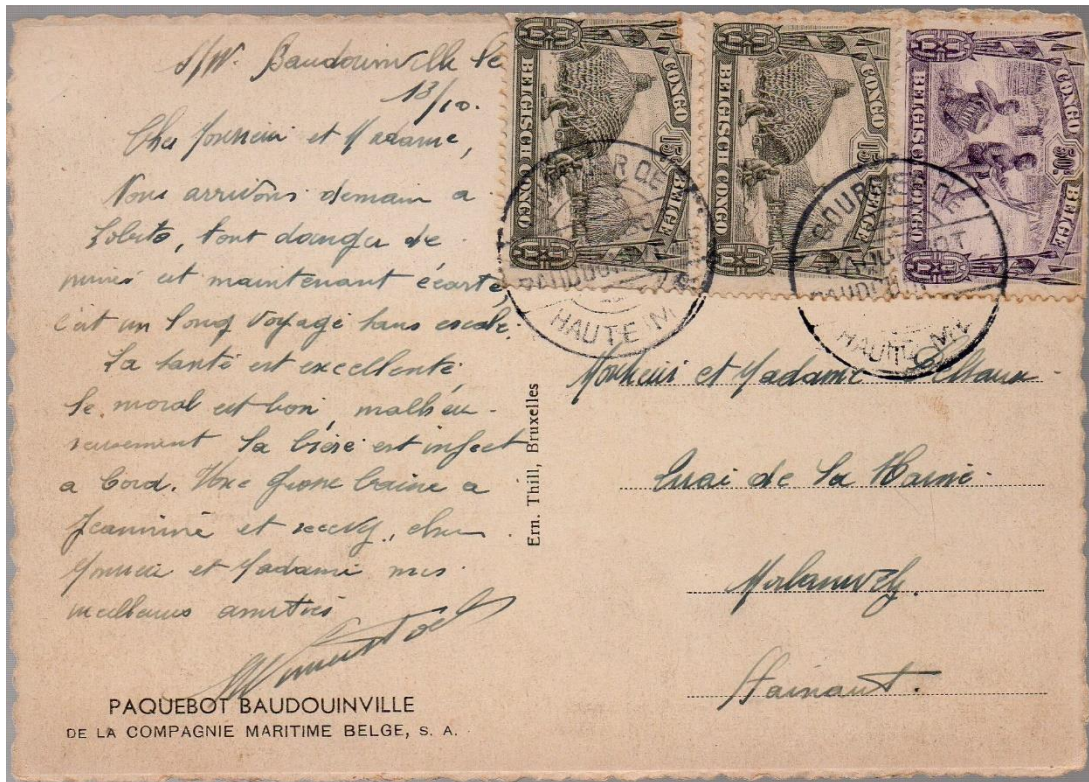 S/W. Baudouinville le
13/10.
Cher Monsieur et Madame,
Nous arrivons demain a
Lobito, tout danger de
mines est maintenant écarté,
c'est un long voyage sans escale.
La santé est excellente
le moral est bon, malheu-
reusement la bière est infect
a bord. Une grosse baise a
Jeannine et
Monsieur et Madame mes
meilleures amitiés
PAQUEBOT BAUDOUINVILLE
DE LA COMPAGNIE MARITIME BELGE, S. A.
Ern. Thill, Bruxelles
CONGO BELGE
BELGISCH CONGO
15c
CONGO BELGE
BELGISCH CONGO
15c
CONGO BELGE
BELGISCH CONGO
50c
COURRIER DE
HAUTE MER
COURRIER DE
PAQUEBOT
BAUDOUIN
HAUTE MER
Monsieur et Madame
Quai de la Haine
Morlanwelz.
Hainaut.